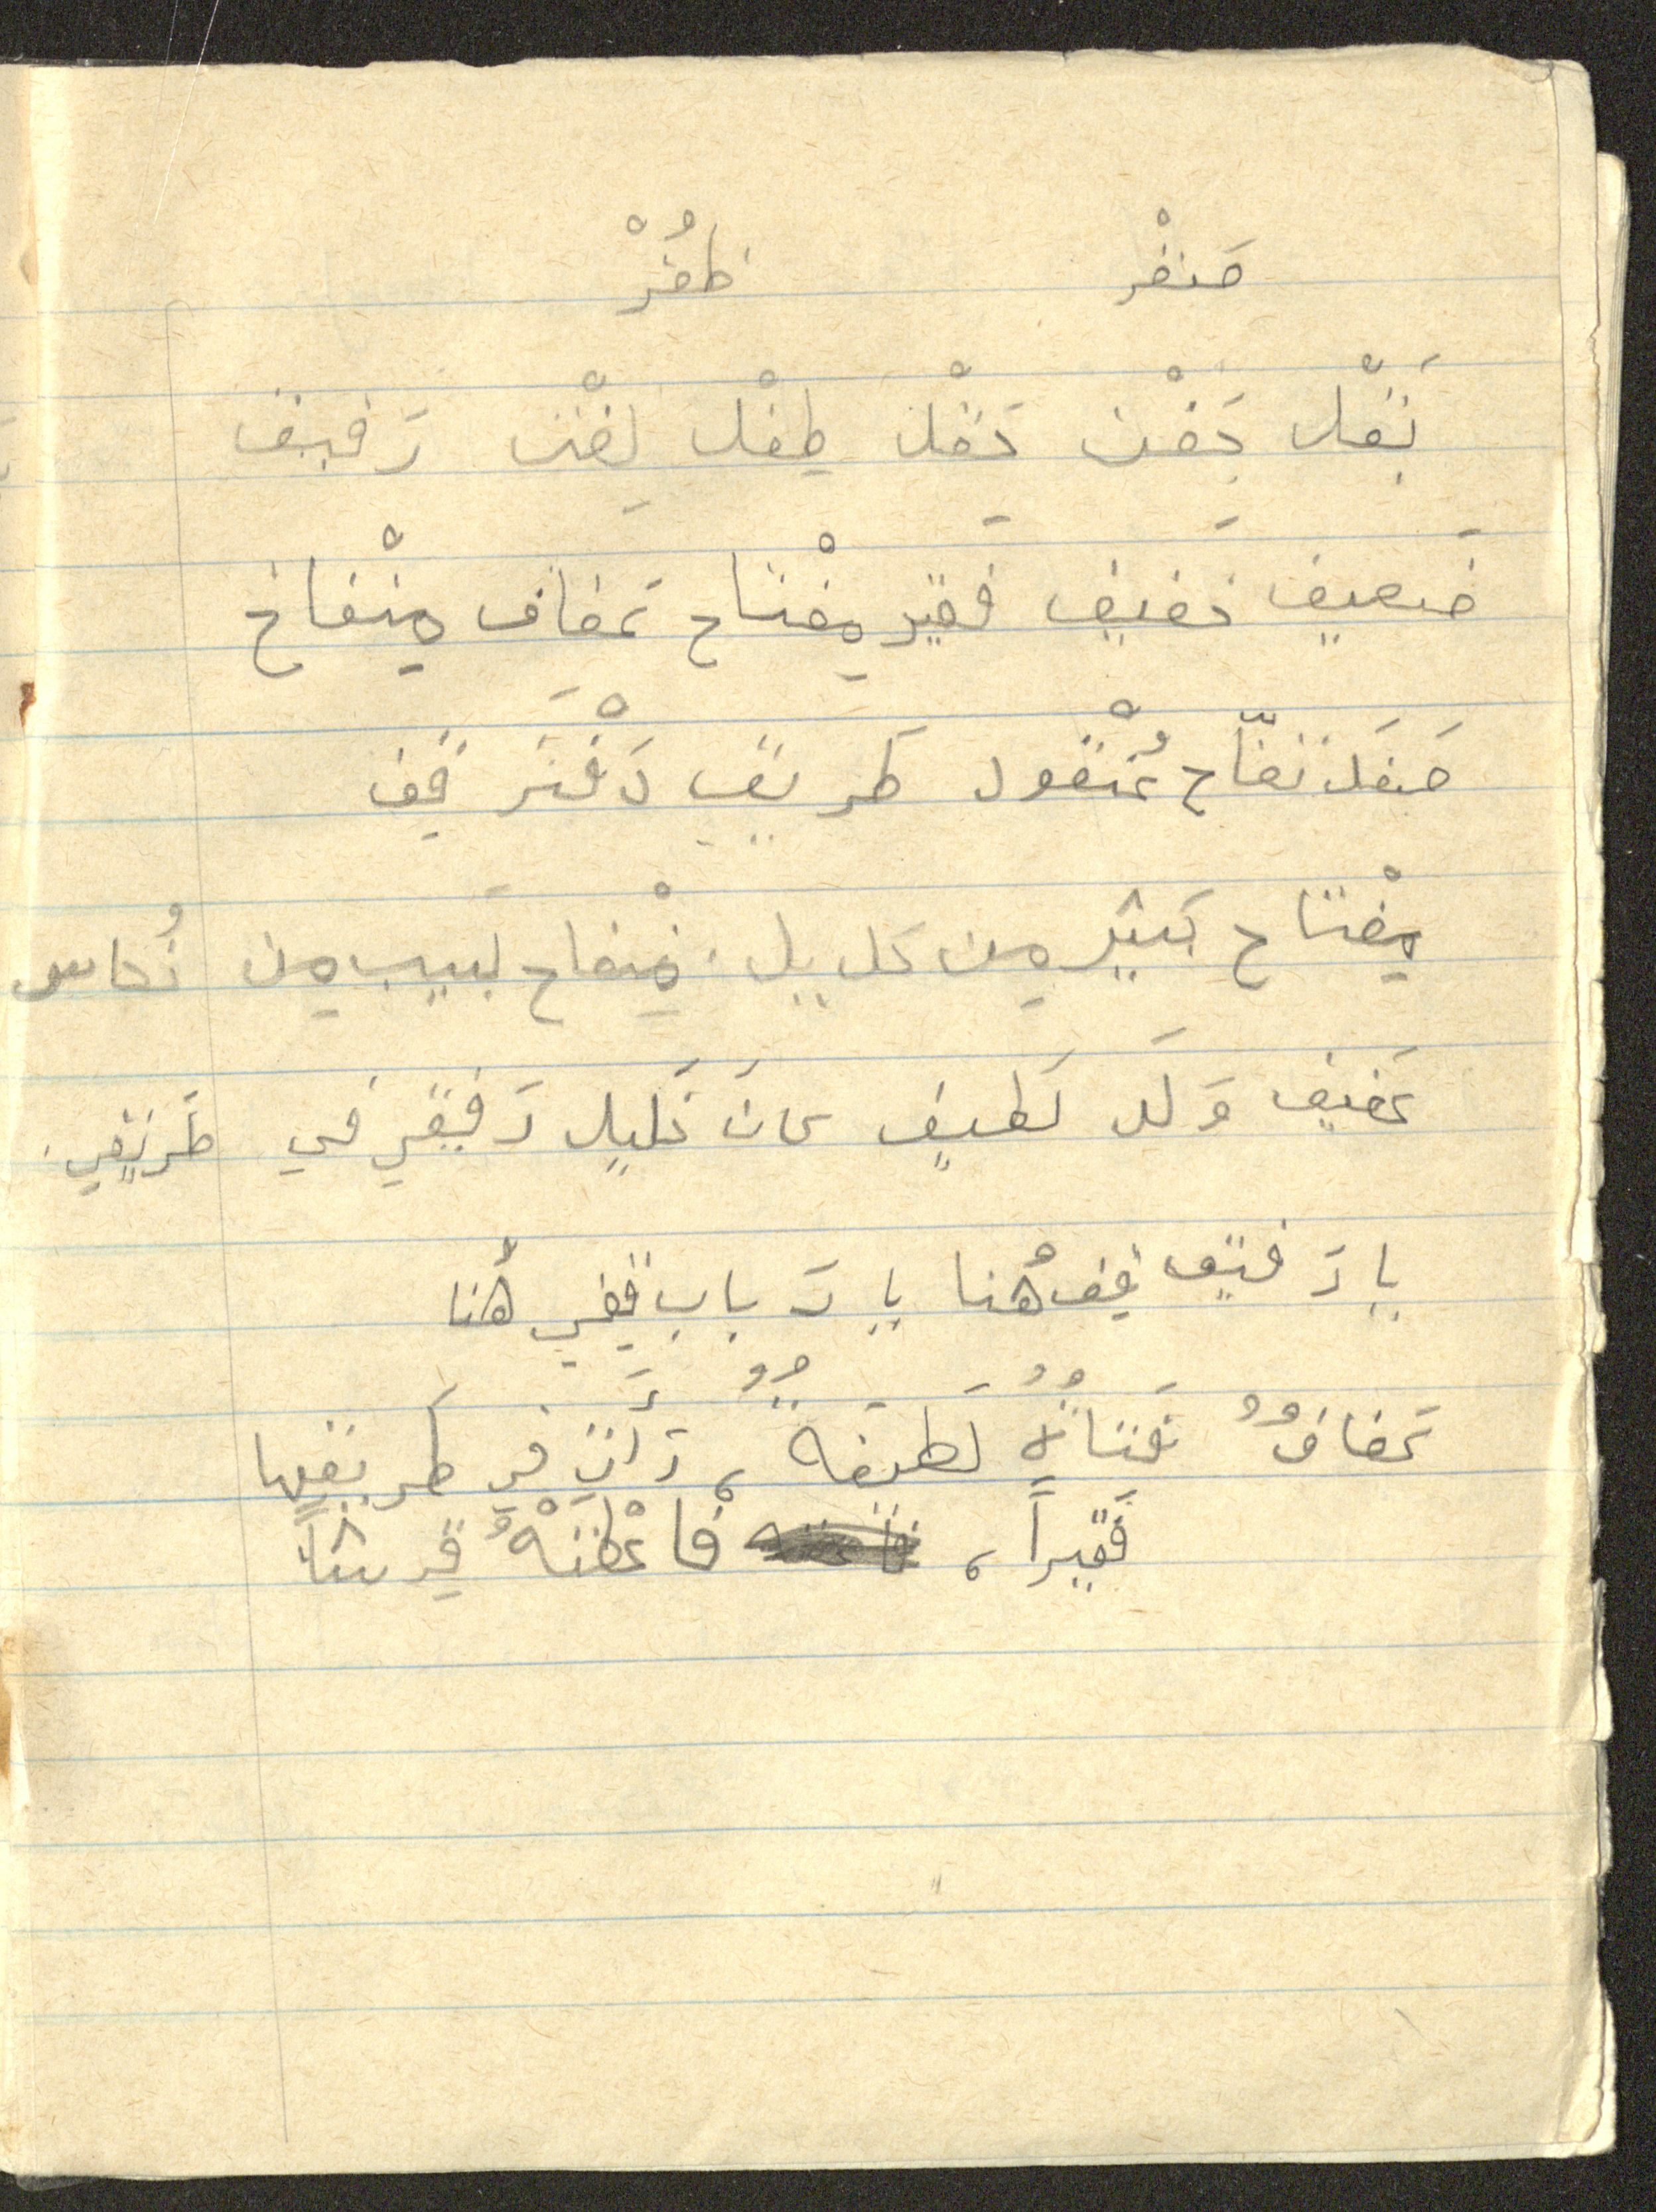 صَفْر ظُفُرْ
بَقْل جَفْن حَقْل طِفْل لِفْت رَفيق
ضَعيف خَفيف فَقير مِفْتاح عَفاف مِنْفاخ
صَقَلَ تفّاح عُنْقود طَريق دَفْتَر قِف
مِفْتاح كَبير مِن حَديد . مِنْفاخ لَبيب مِن نُحاس
عَفيف وَلَد لَطيف كانَ خَليل رَفيقي في طَريقي .
يا رَفيق قِف هُنا يا رَباب قِفي هُنا
عَفافُ فَتاةٌ لَطيفَةٌ ، رَأَت في طَريقِها
فَقيراً ، فاعْطَتْهُ قِرشاً